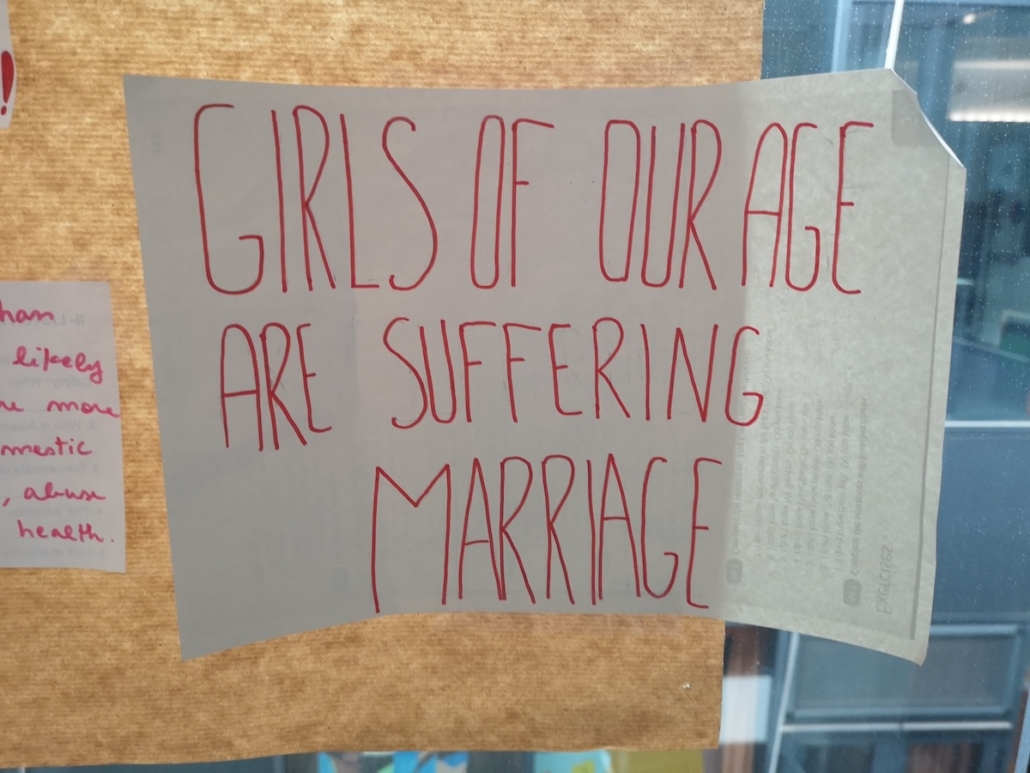 GIRLS OF OUR AGE
ARE SUFFERING
MARRIAGE
!
han
likely
more
mestic
, abuse
health.